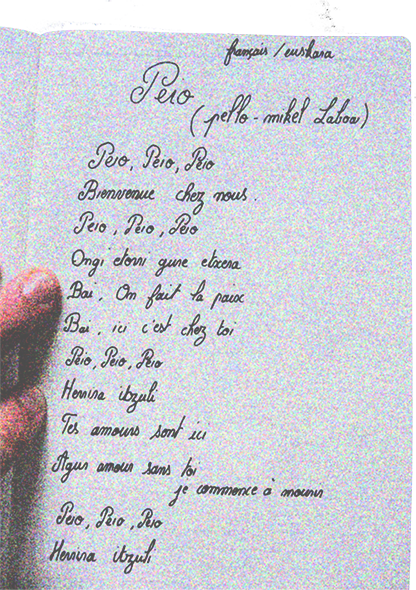 français / euskara
Peio
(pello - mikel Laboa)
Peio, Peio, Peio
Bienvenue chez nous.
Peio, Peio, Peio
Ongi etorri gure etxera
Bai, On fait la paix
Bai, ici c'est chez toi
Peio, Peio, Peio
Herrira itzuli
Tes amours sont ici
Agur amour sans toi
je commence à mourir
Peio, Peio, Peio
Herrira itzuli